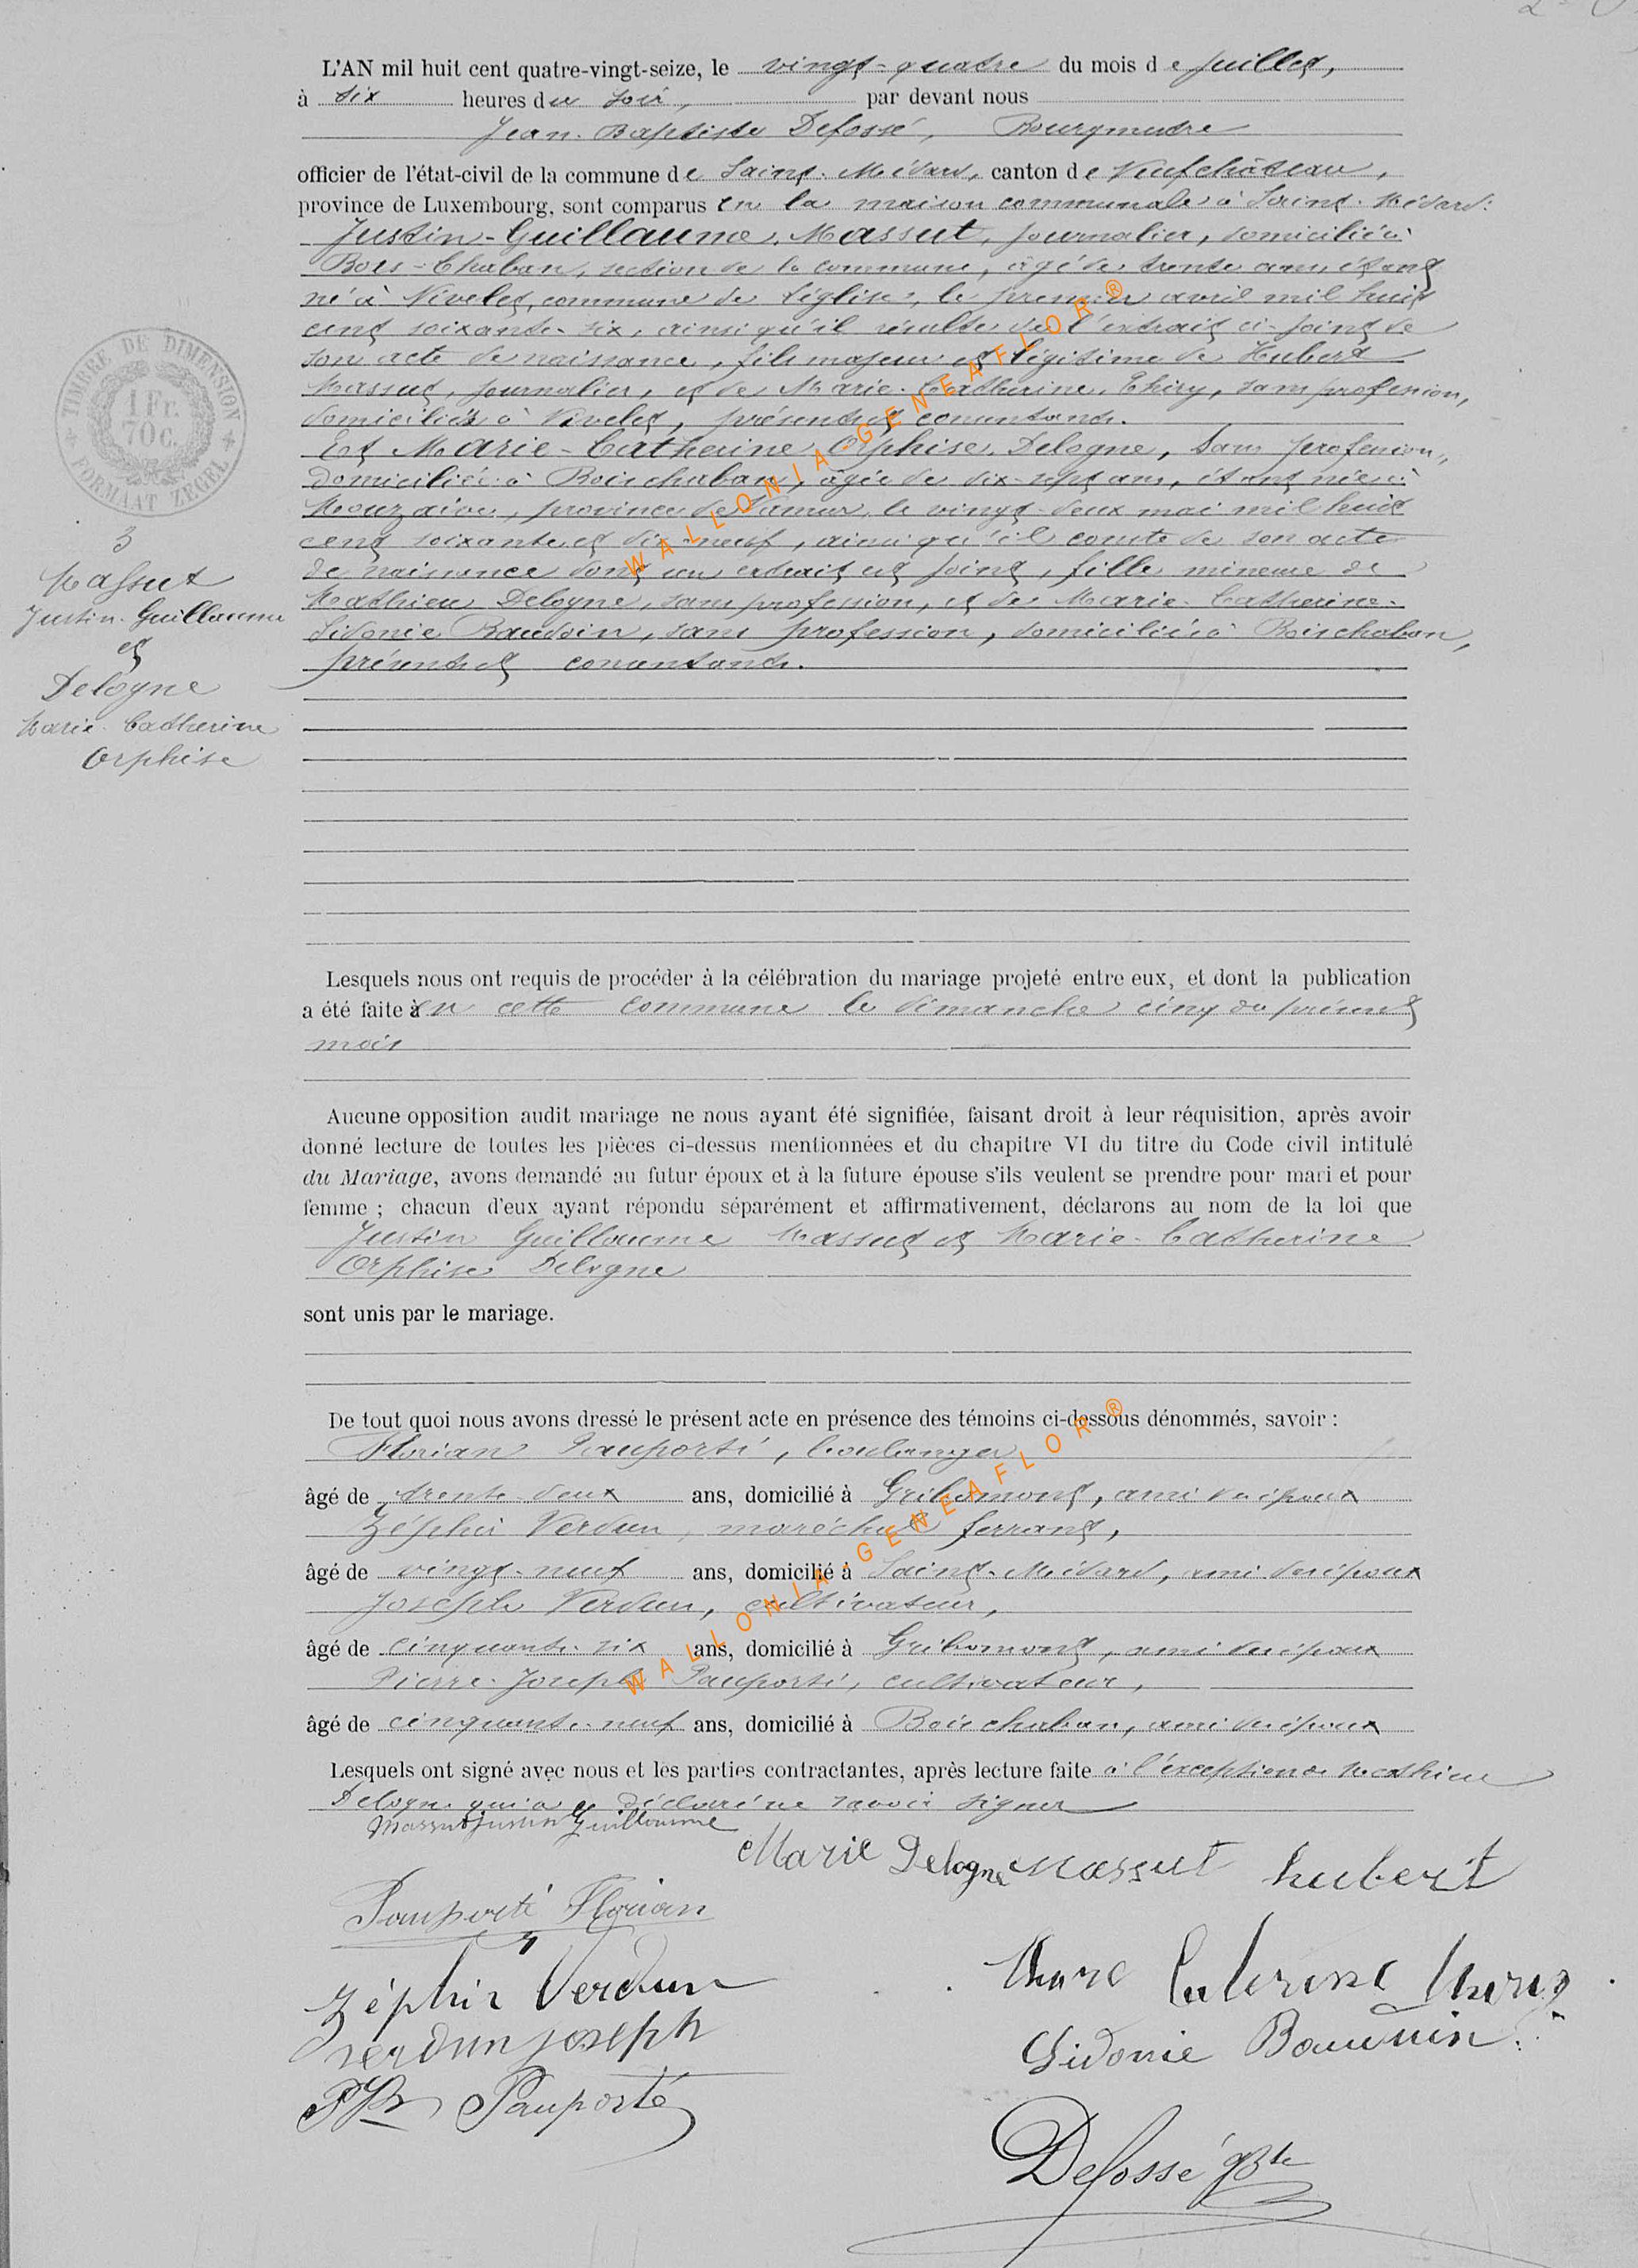 L'AN mil huit cent quatre-vingt-seize, le vingt-quatre du mois de juillet,
à six heures du soir, par devant nous
Jean-Baptiste Defossé, Bourgmestre
officier de l'état-civil de la commune de Saint-Médard, canton de Neufchâteau,
province de Luxembourg, sont comparus en la maison communale à Saint-Médard:
Justin-Guillaume Massut, journalier, domicilié à
Bois-Chaban, section de la commune, âgé de trente ans, étant
né à Nivelet, commune de Léglise, le premier avril mil huit
cent soixante-six, ainsi qu'il résulte de l'extrait ci-joint de
son acte de naissance, fils majeur et légitime de Hubert
Massut, journalier, et de Marie-Catherine Thiry, sans profession,
domiciliés à Nivelet, présents et consentants.
Et Marie-Catherine Orphise Delogne, sans profession,
domiciliée à Boischaban, âgée de dix-sept ans, étant née à
Mouzaive, province de Namur, le vingt-deux mai mil huit
cent soixante et dix-neuf, ainsi qu'il conste de son acte
de naissance dont un extrait est joint, fille mineure de
Mathieu Delogne, sans profession, et de Marie-Catherine-
Sidonie Baudoin, sans profession, domiciliés à Boischaban,
présents et consentants.
TIMBRE DE DIMENSION
1 Fr.
70 c.
FORMAAT ZEGEL
3
Massut
Justin-Guillaume
et
Delogne
Marie-Catherine
Orphise
Lesquels nous ont requis de procéder à la célébration du mariage projeté entre eux, et dont la publication
a été faite en cette commune le dimanche cinq du présent
mois
Aucune opposition audit mariage ne nous ayant été signifiée, faisant droit à leur réquisition, après avoir
donné lecture de toutes les pièces ci-dessus mentionnées et du chapitre VI du titre du Code civil intitulé
du Mariage, avons demandé au futur époux et à la future épouse s'ils veulent se prendre pour mari et pour
femme ; chacun d'eux ayant répondu séparément et affirmativement, déclarons au nom de la loi que
Justin Guillaume Massut et Marie-Catherine
Orphise Delogne
sont unis par le mariage.
De tout quoi nous avons dressé le présent acte en présence des témoins ci-dessous dénommés, savoir :
Florian Pauporté, boulanger
âgé de trente-deux ans, domicilié à Gribomont, ami des époux
Zéphir Verdun, maréchal ferrant,
âgé de vingt-neuf ans, domicilié à Saint-Médard, ami des époux
Joseph Verdun, cultivateur,
âgé de cinquante-six ans, domicilié à Gribomont, ami des époux
Pierre-Joseph Pauporté, cultivateur,
âgé de cinquante-neuf ans, domicilié à Boischaban, ami des époux
Lesquels ont signé avec nous et les parties contractantes, après lecture faite à l'exception de Mathieu
Delogne qui a déclaré ne savoir signer
Massut Justin Guillaume
Marie Delogne Massut hubert
Pauporté Florian
Zéphir Verdun
verdun joseph
Pauporté
Caterine
Sidonie Baudoin
Defossé JBte
WALLONIA-GENEAFLOR®
WALLONIA-GENEAFLOR®